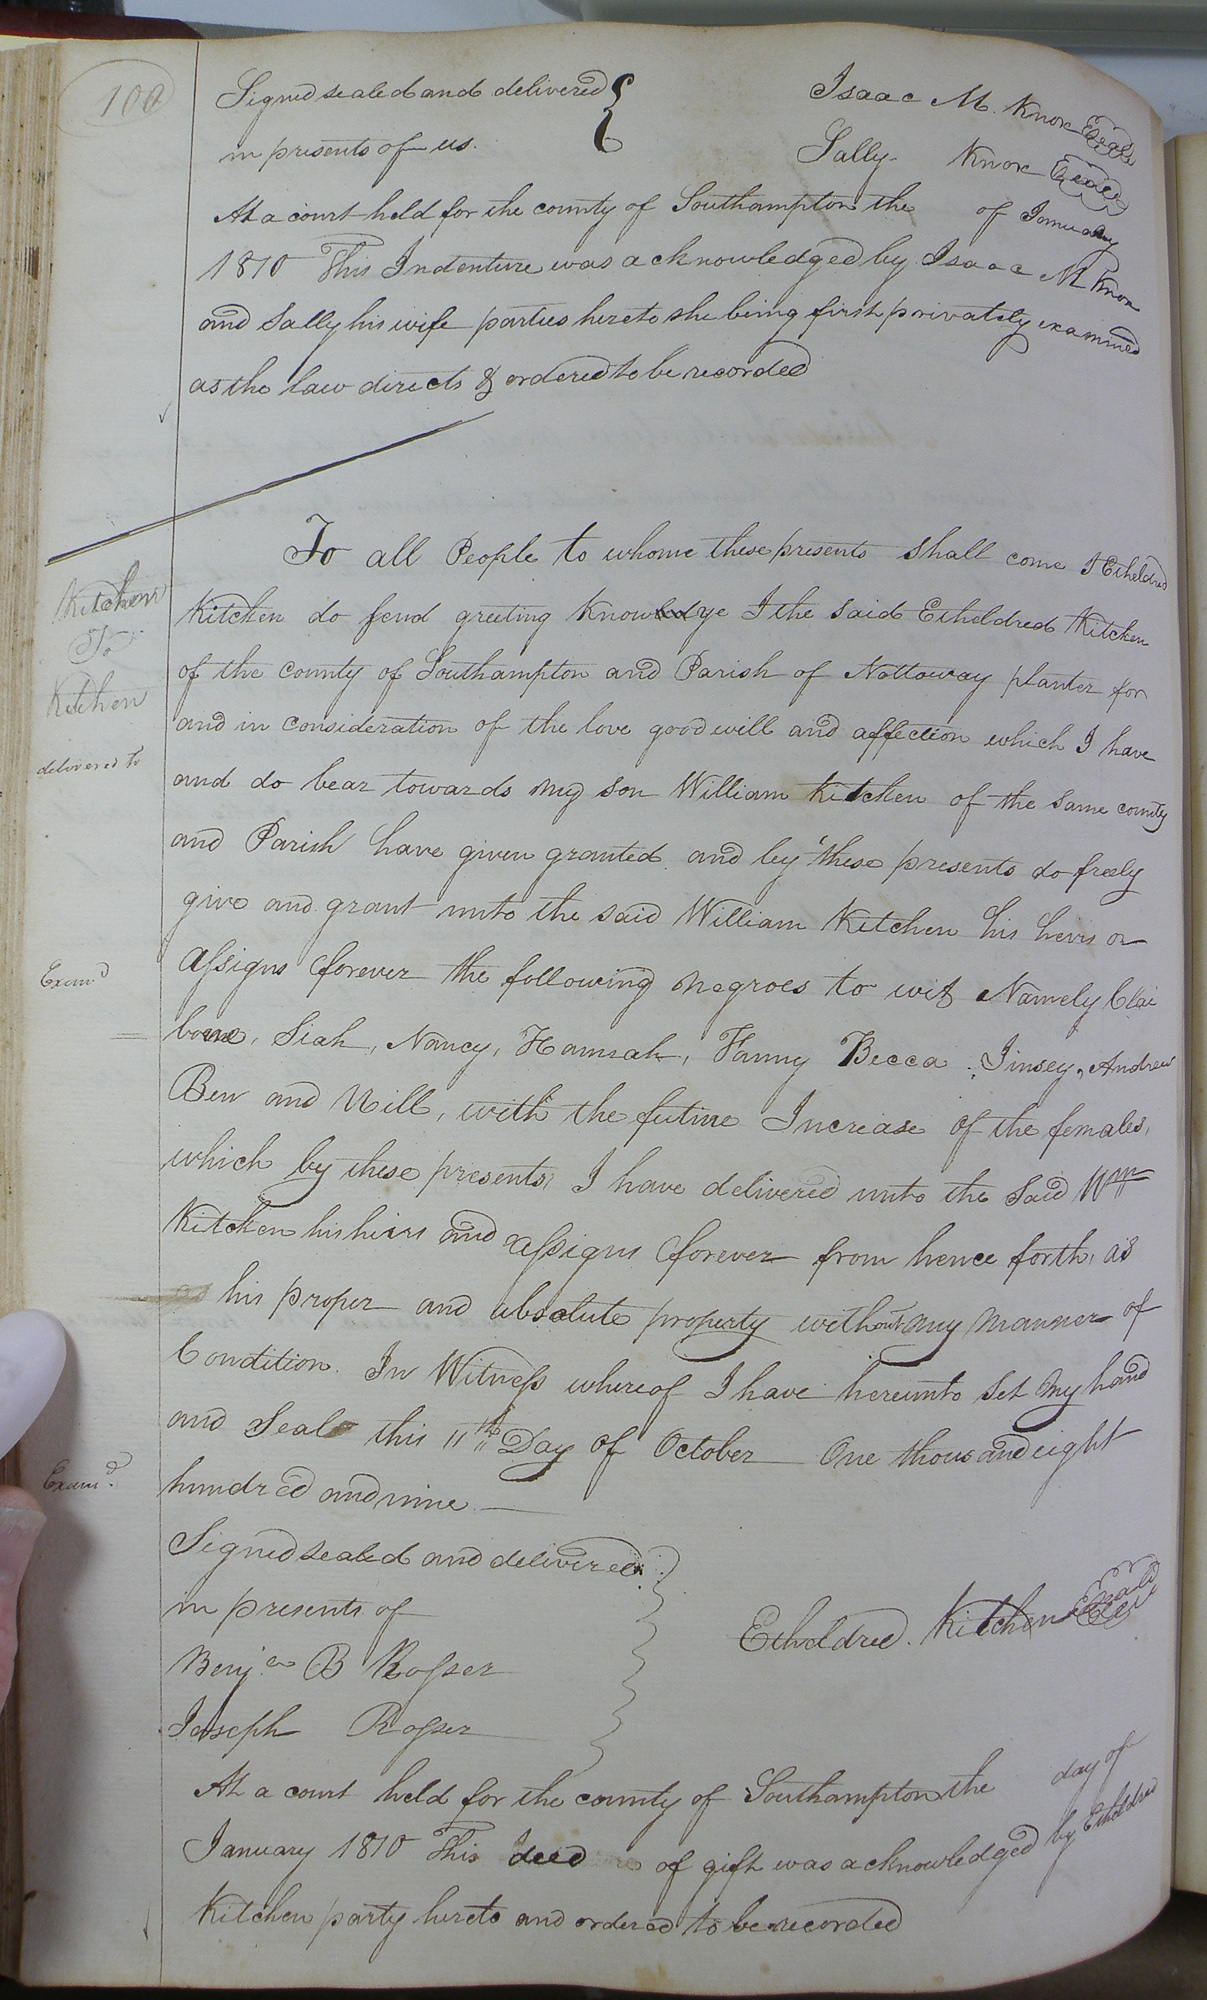 100
Signed sealed and delivered
in presents of us.
Isaac M. Knox Seal
Sally Knox Seal
At a court held for the county of Southampton the of January
1810 This Indenture was acknowledged by Isaac M Knox
and Sally his wife parties hereto she being first privately examined
as the law directs & ordered to be recorded
Kitchen
To
Kitchen
delivered to
To all People to whome these presents shall come I Etheldred
Kitchen do send greeting Know ye I the said Etheldred Kitchen
of the county of Southampton and Parish of Nottoway planter for
and in consideration of the love good will and affection which I have
and do bear towards my son William Kitchen of the same county
and Parish have given granted and by these presents do freely
give and grant unto the said William Kitchen his heirs or
Exam.d
assigns forever the following negroes to wit Namely Clai
borne, Siah, Nancy, Hannah, Fanny Becca, Jinsey, Andrew
Ben and Will, with the future Increase of the females,
which by these presents, I have delivered unto the said Wm
Kitchen his heirs and assigns forever from hence forth, as
his proper and absolute property without any manner of
Condition. In Witness whereof I have hereunto set my hand
and Seal this 11th Day of October One thousand eight
Exam.d
hundred and nine
Signed sealed and delivered
in presents of
Etheldred. Kitchen Seal
Benja B Rosser
Joseph Rosser
At a court held for the county of Southampton the day of
January 1810 This deed of gift was acknowledged by Etheldred
Kitchen party hereto and ordered to be recorded